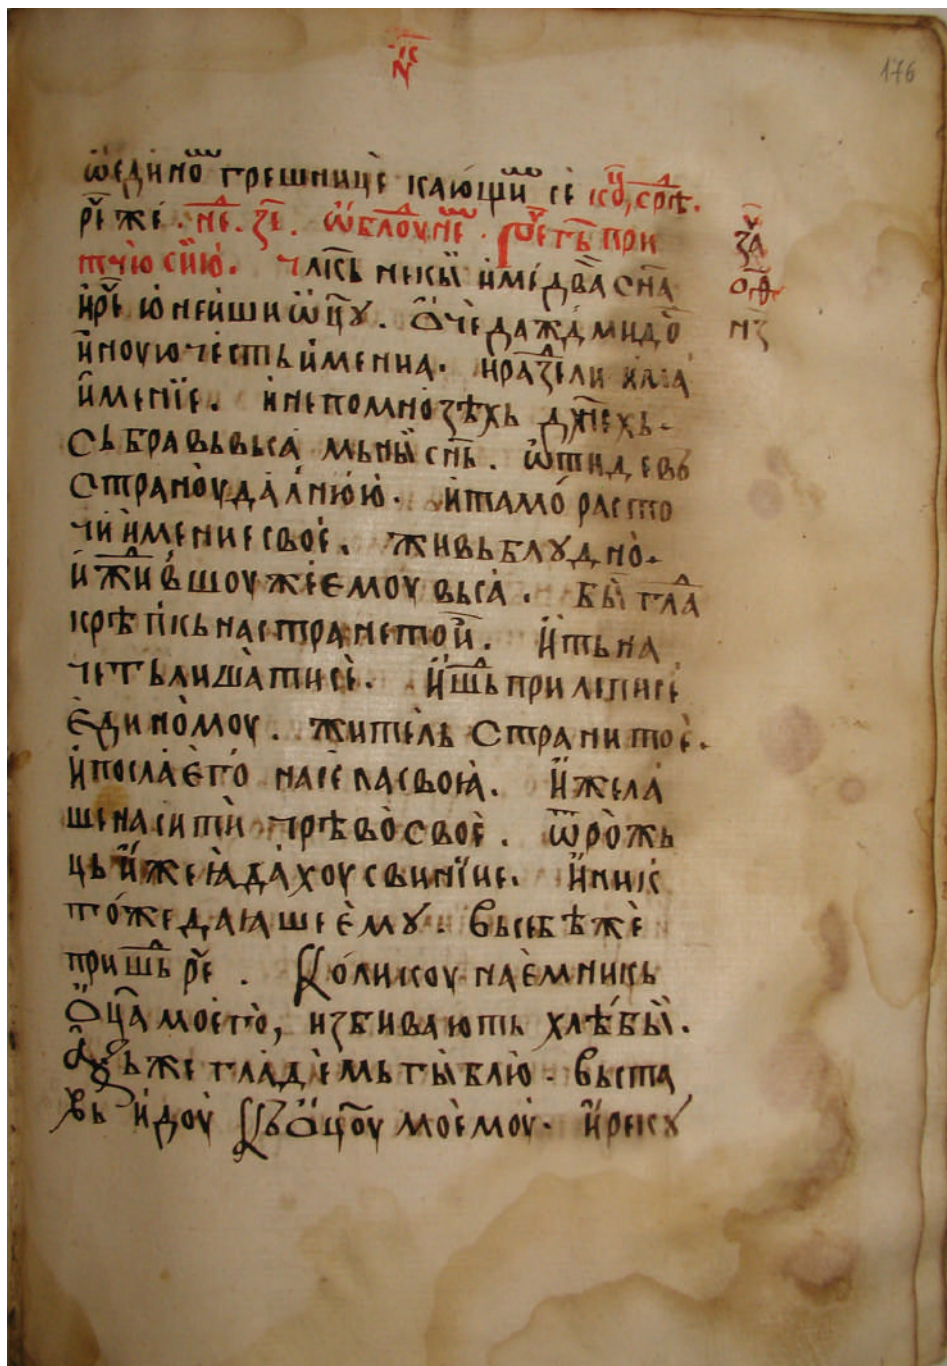 н҃е
176
ѡ҆един̾ом грешницѐ каю́щим сѐ ко҃, срⷣѣ.
рⷱ҇е же. не҃. зе҃. ѡ҆ блоуⷣнⷨе. рⷱ҇е гь҃ при
тчю̀ сию̀. чл҃кь некїи и҆ме́ два̀ сн҃а
и҆рⷱ҇е ю҆неиши ѡ҆ц҃ꙋ. ѡ҆́че даждь ми до
и҆ноую че́сть и҆мениа. и҆раздⷣели и҆ма
и҆менїе. и҆ не по мнозѣхь дн҃ехь.
сьбравь вьса мьнїи сн҃ь. ѿиде вь
страноу да́лнюю̀. и҆тамо́ расто
чи и҆мение своѐ. живь блꙋдно̀.
и҆ жⷣившоу же е҆моу вьса̀. бы̀ глаⷣ
крѣпкь на стране тои. и҆ ть на
четь лиша̀ти сѐ. и҆ шⷣь при лепи се
е҆дино̀моу. жи́тель страни тоѐ.
и҆ посла е҆го̀ на села своꙗ̀. и҆ жела
ше насити́ти чрѣво̀ своѐ. ѿ ро̀жь
ць и҆же ꙗ҆да́хоу свинїие. и҆ никь
то́же даꙗше е҆мꙋ̀. вь себѣ жѐ
пришⷣь рⷱ҇е. Ко́ликоу нае̂мникь
ѻ҆ц҃а моего̀, избивають хлѣ́бы.
а҆зь же гла́дѐмь гы́блю̀. вьста
вь и҆доу̀ кь ѻ҆ц҃оу моѐмоу. и҆ рекꙋ
за҃
ѻ҃ѳ
нз